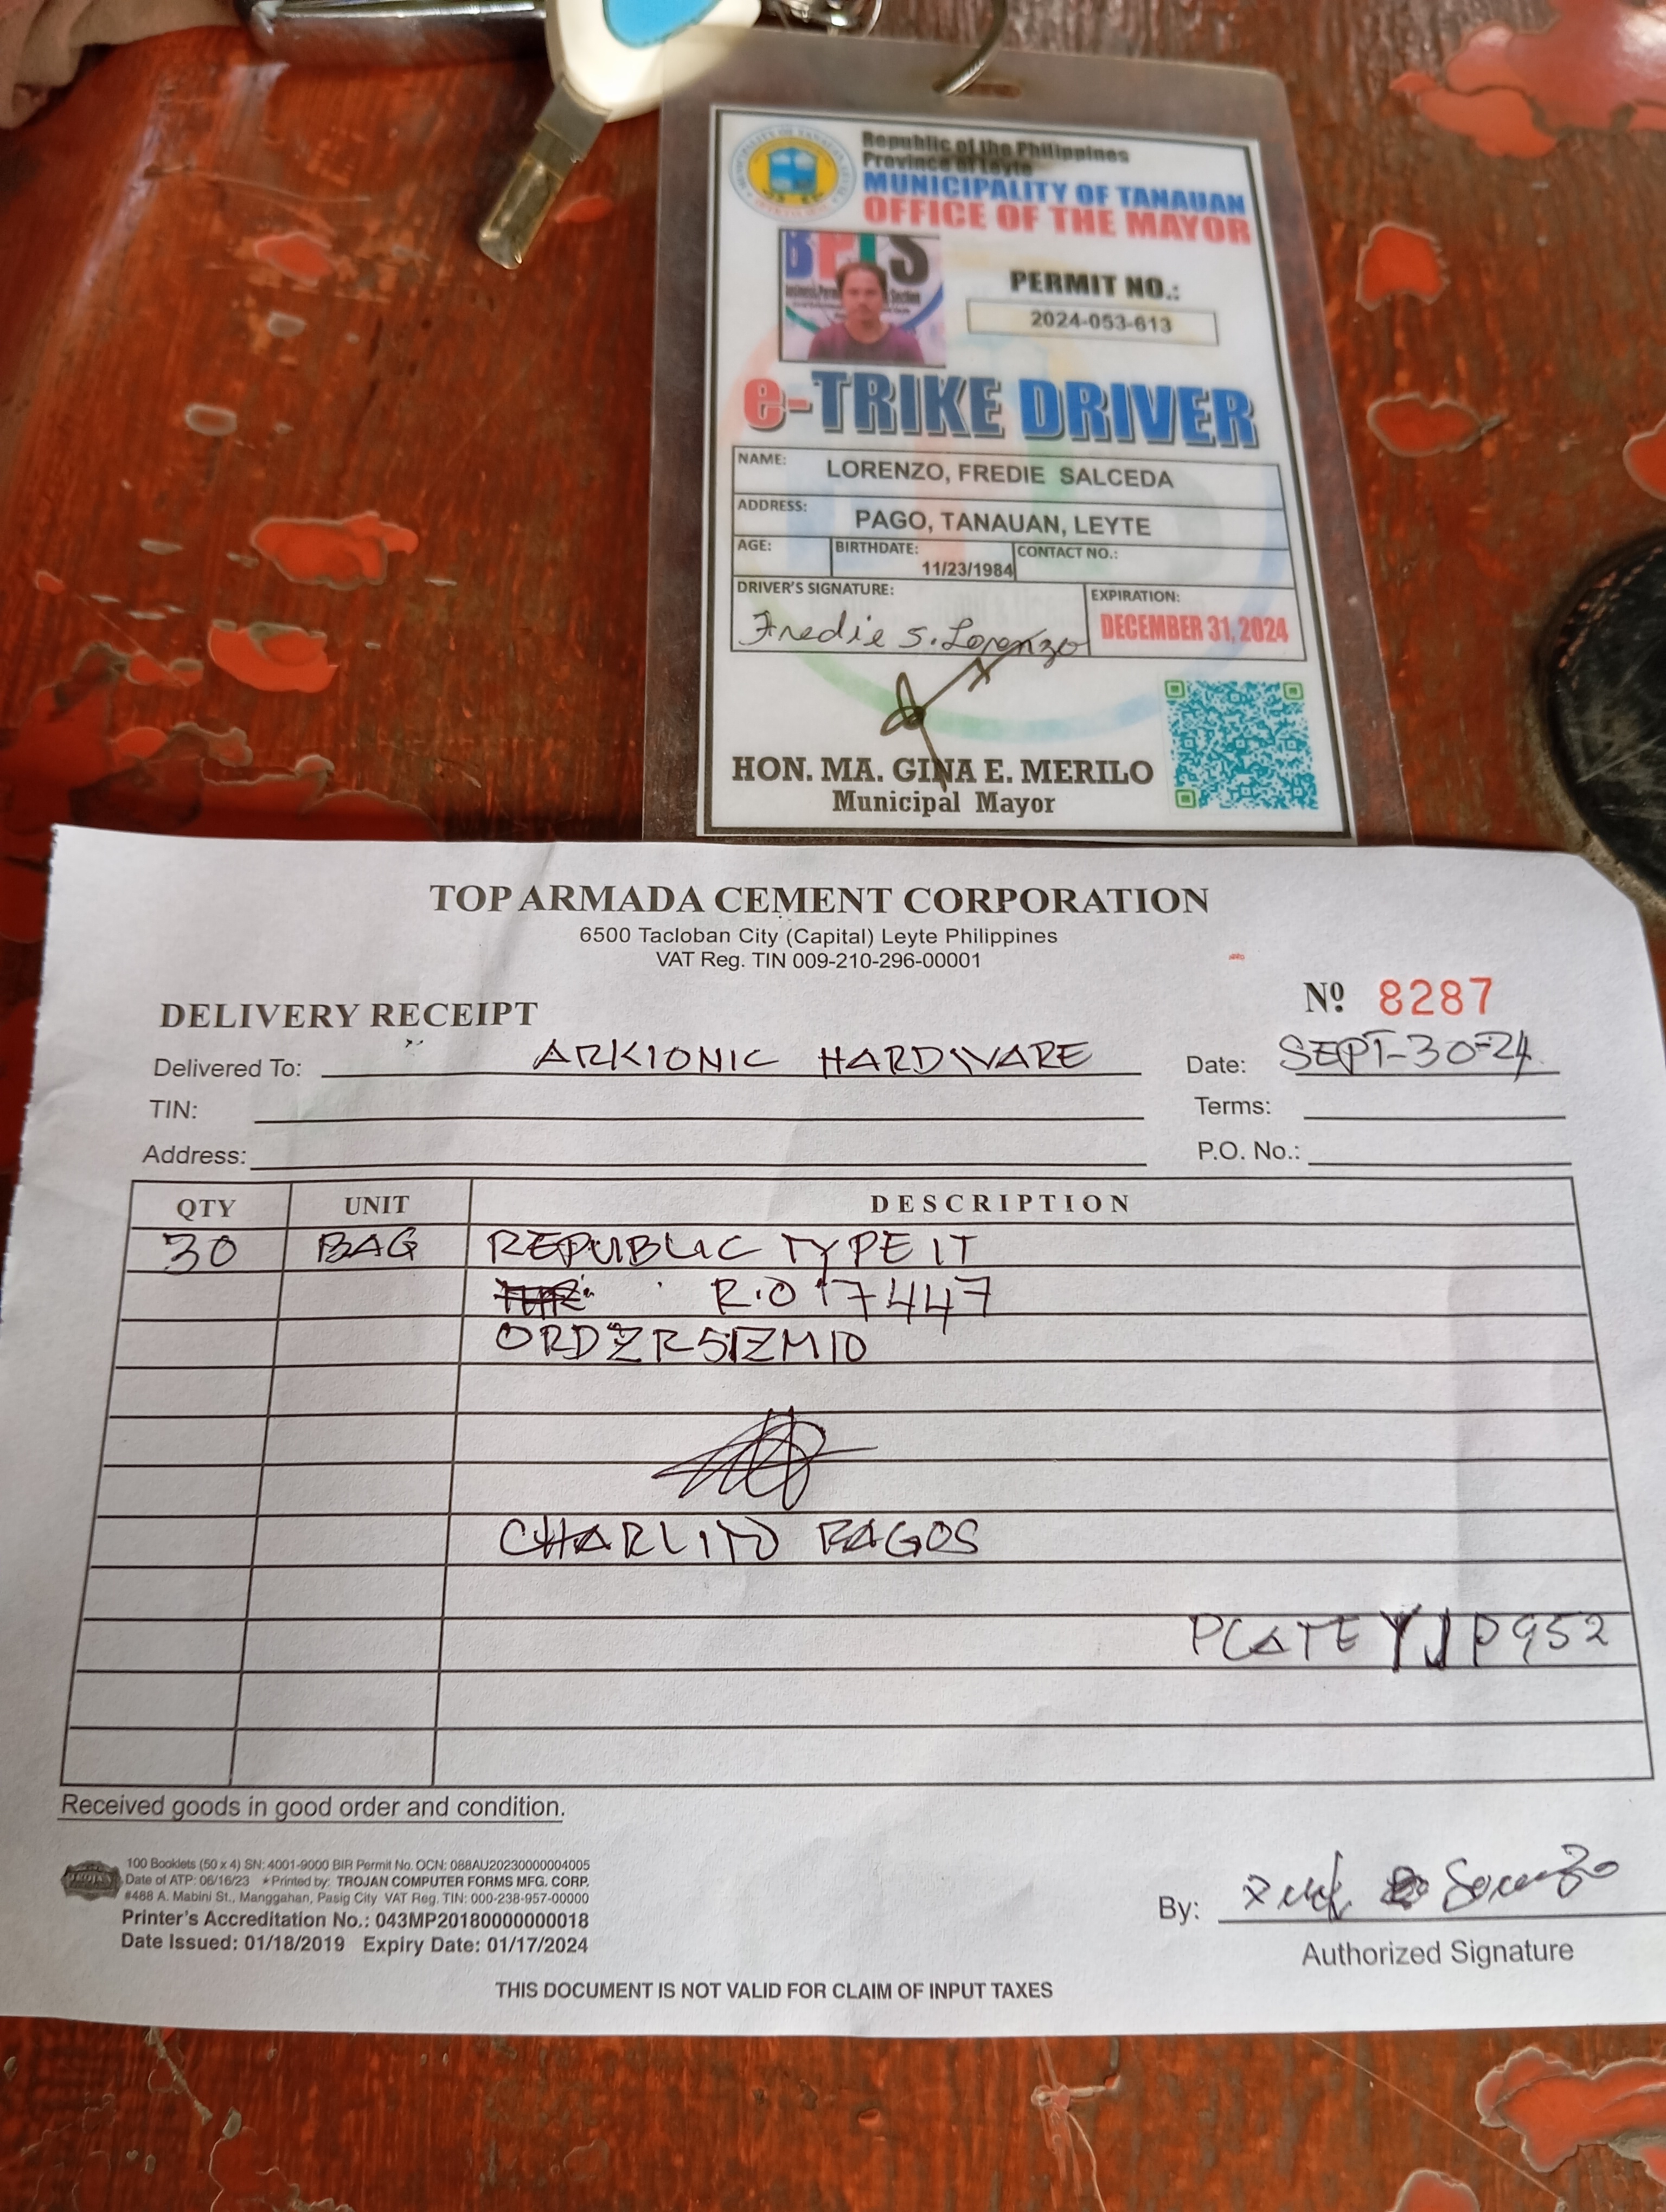 Republic of the Philippines
Province of Leyte
MUNICIPALITY OF TANAUAN
OFFICE OF THE MAYOR
BPLS
PERMIT NO.:
2024-053-613
e-TRIKE DRIVER
NAME: LORENZO, FREDIE SALCEDA
ADDRESS: PAGO, TANAUAN, LEYTE
AGE: BIRTHDATE: 11/23/1984 CONTACT NO.:
DRIVER'S SIGNATURE: EXPIRATION:
Fredie S. Lorenzo DECEMBER 31, 2024
HON. MA. GINA E. MERILO
Municipal Mayor
TOP ARMADA CEMENT CORPORATION
6500 Tacloban City (Capital) Leyte Philippines
VAT Reg. TIN 009-210-296-00001
DELIVERY RECEIPT Nº 8287
Delivered To: ARKIONIC HARDWARE Date: SEPT-30-24
TIN: Terms:
Address: P.O. No.:
QTY UNIT DESCRIPTION
30 BAG REPUBLIC TYPE IT
R.O 17447
CHARLITO
PLATE YJP952
Received goods in good order and condition.
100 Booklets (50 x 4) SN: 4001-9000 BIR Permit No. OCN: 088AU20230000004005
Date of ATP: 06/16/23 ★Printed by: TROJAN COMPUTER FORMS MFG. CORP.
#488 A. Mabini St., Manggahan, Pasig City VAT Reg. TIN: 000-238-957-00000
Printer's Accreditation No.: 043MP20180000000018
Date Issued: 01/18/2019 Expiry Date: 01/17/2024
By: Lorenzo
Authorized Signature
THIS DOCUMENT IS NOT VALID FOR CLAIM OF INPUT TAXES